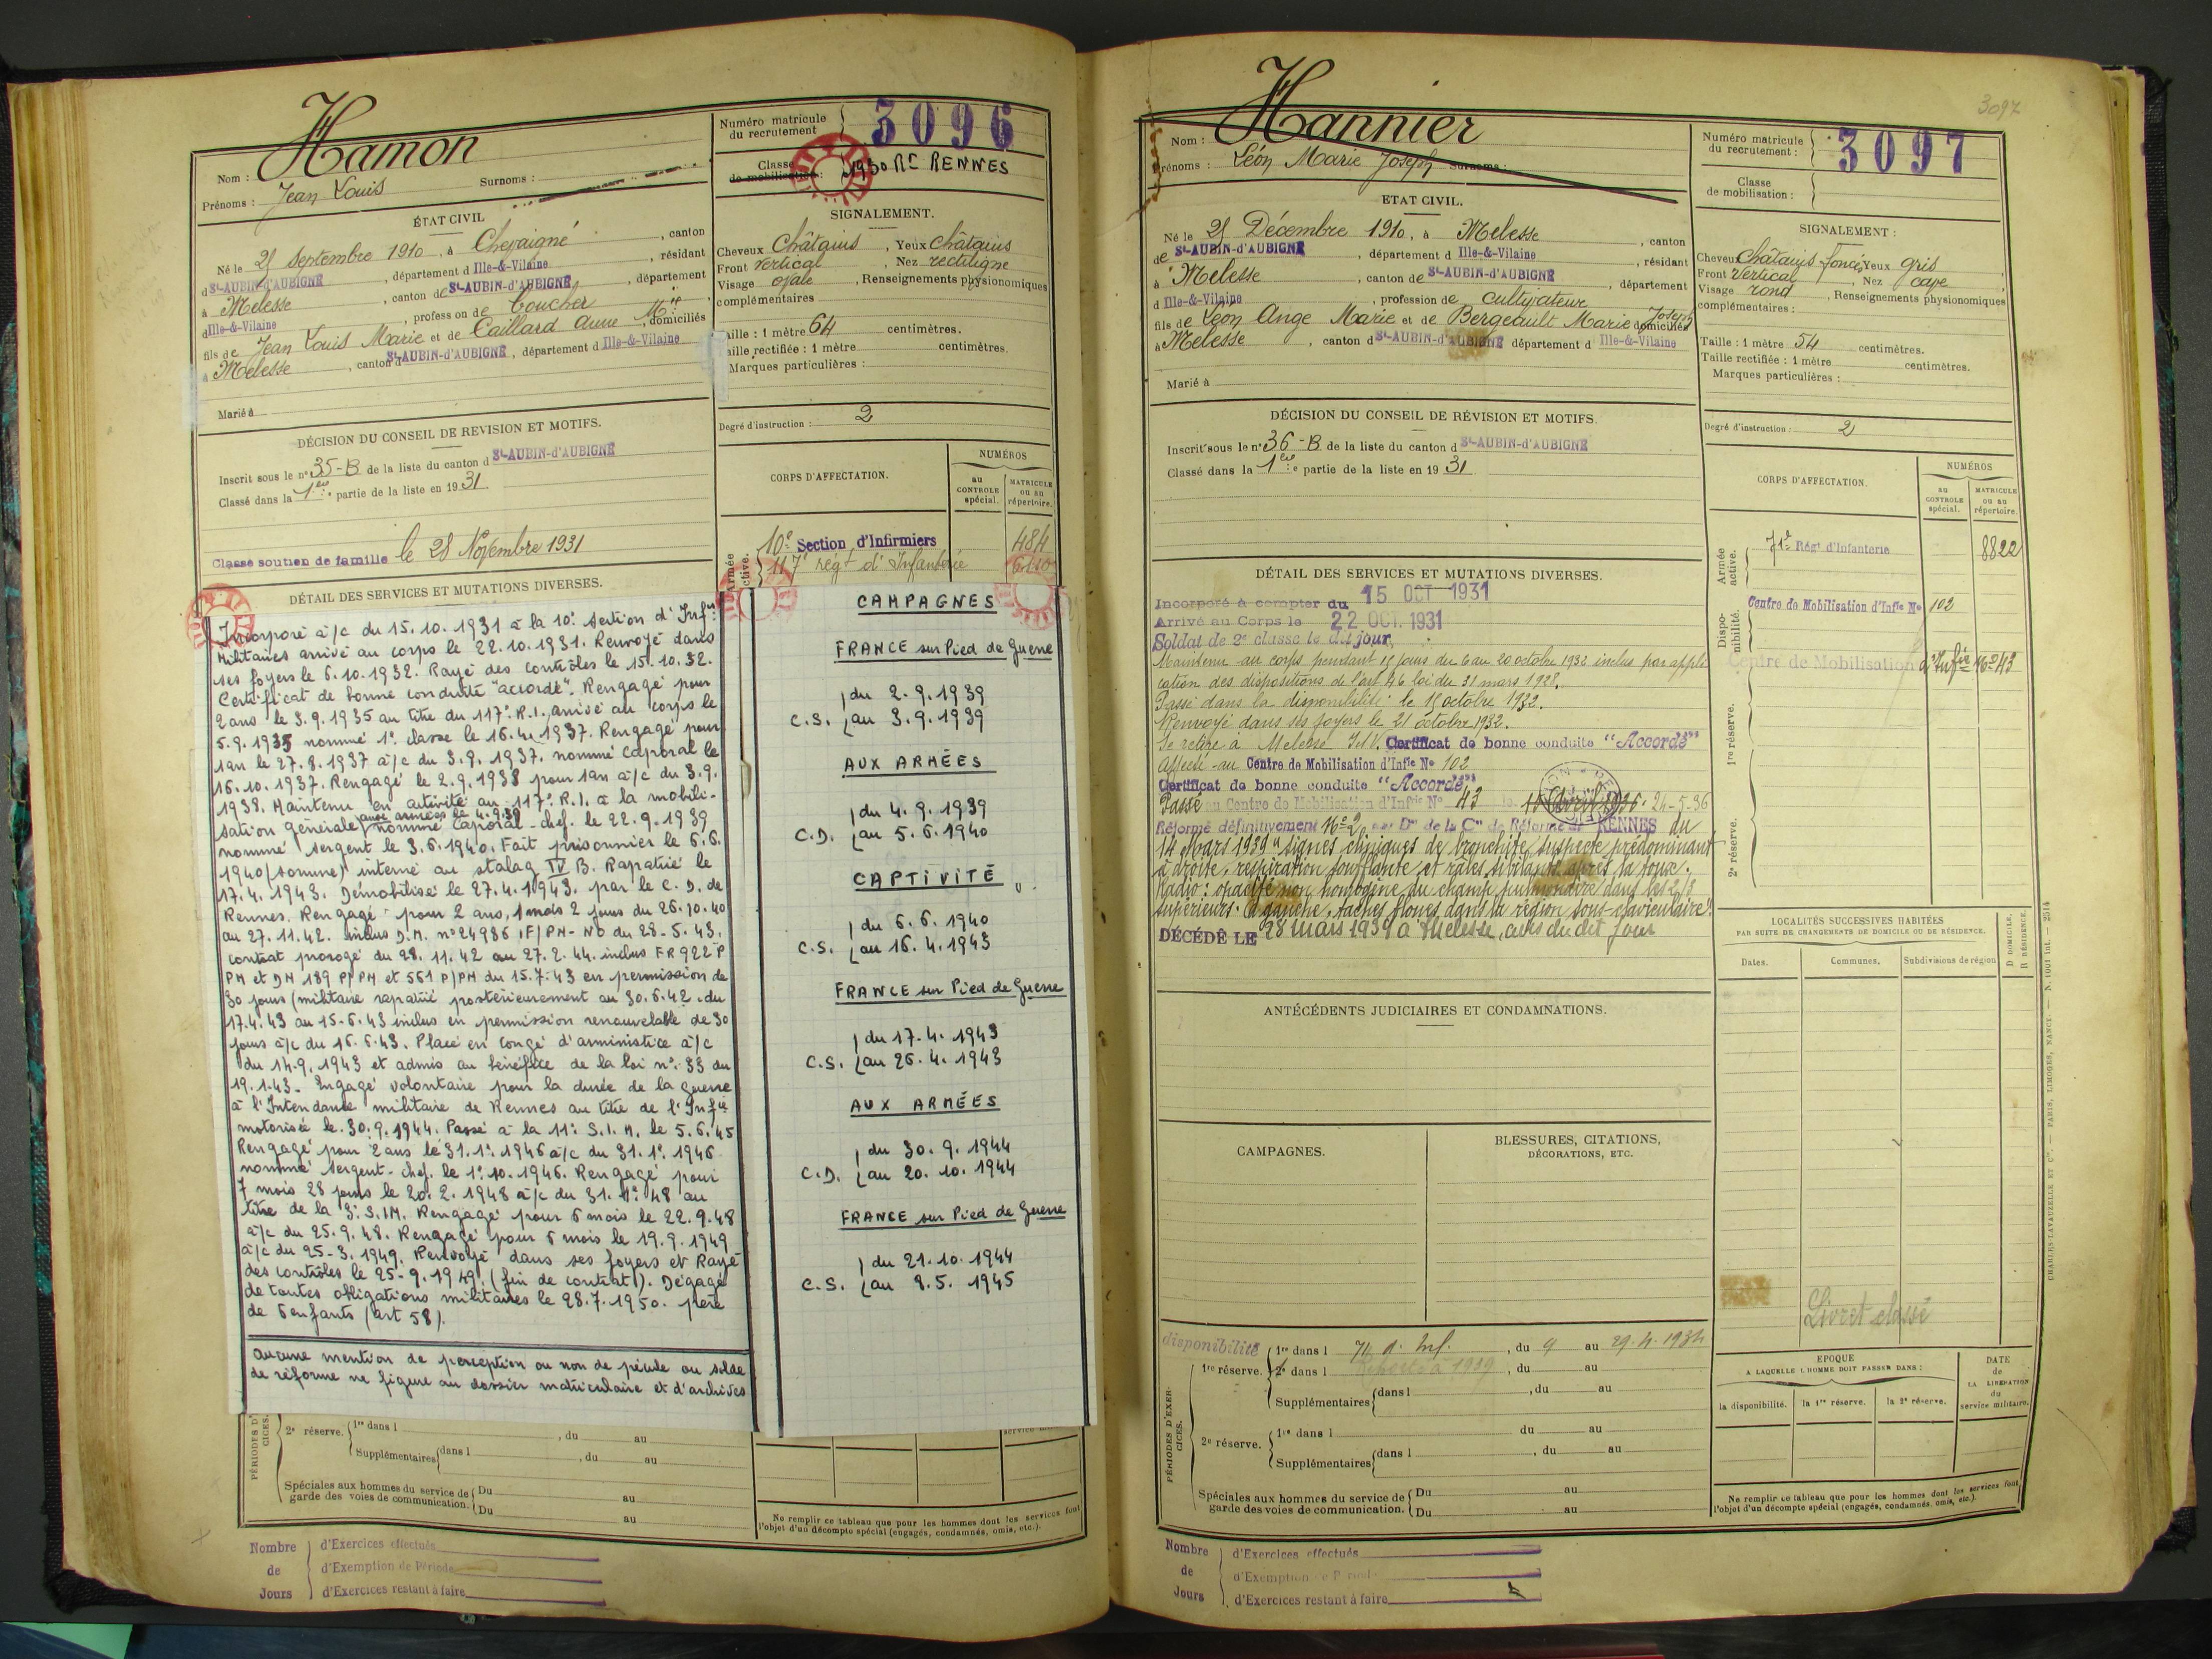 Nom : Hamon
Prénoms : Jean Louis Surnoms :
ÉTAT CIVIL
Né le 25 Septembre 1910, à Chevaigné, canton
d St-AUBIN-d'AUBIGNÉ, département d Ille-&-Vilaine, résidant
à Melesse, canton de St-AUBIN-d'AUBIGNÉ, département
d Ille-&-Vilaine, profession de boucher
fils de Jean Louis Marie et de Caillard Anne Mie, domiciliés
à Melesse, canton d St-AUBIN-d'AUBIGNÉ, département d Ille-&-Vilaine
Marié à
DÉCISION DU CONSEIL DE REVISION ET MOTIFS.
Inscrit sous le n° 35-B de la liste du canton d St-AUBIN-d'AUBIGNÉ
Classé dans la 1ère partie de la liste en 1931
Classé soutien de famille le 28 Novembre 1931
DÉTAIL DES SERVICES ET MUTATIONS DIVERSES.
Incorporé à/c du 15.10.1931 à la 10e Section d'Infrs
Militaires arrivé au corps le 22.10.1931. Renvoyé dans
ses foyers le 6.10.1932. Rayé des contrôles le 15.10.32.
Certificat de bonne conduite "accordé". Rengagé pour
2 ans le 3.9.1935 au titre du 117e R.I. arrivé au corps le
5.9.1935 nommé 1e classe le 16.4.1937. Rengagé pour
1an le 27.8.1937 à/c du 3.9.1937. nommé Caporal le
16.10.1937. Rengagé le 2.9.1938 pour 1an à/c du 3.9.
1938. Maintenu en activité au 117e R.I. à la mobili-
sation générale aux armées le 4.9.39 nommé Caporal-chef. le 22.9.1939
nommé sergent le 3.6.1940. Fait prisonnier le 6.6.
1940 (somme) interné au stalag IV B. Rapatrié le
17.4.1943. Démobilisé le 27.4.1943. par le C. D. de
Rennes. Rengagé pour 2 ans, 1 mois 2 jours du 26.10.40
au 27.11.42. inclus D.M. n° 24986 1F/PM-NO du 28-5.43.
contrat prorogé du 28.11.42 au 27.2.44. inclus FR 922 P
PM et DM 189 P/PM et 561 P/PM du 15.7.43 en permission de
30 jours (militaire rapatrié postérieurement au 30.6.42. du
17.4.43 au 15-6.43 inclus en permission renouvelable de 30
jours à/c du 16.6.43. Placé en congé d'armistice à/c
du 14.9.1943 et admis au bénéfice de la loi n° 33 du
19.1.43. Engagé volontaire pour la durée de la guerre
à l'Intendance militaire de Rennes au titre de l'Infie
motorisée le 30.9.1944. Passé à la 11e S.I.M. le 5.6.45
Rengagé pour 2 ans le 31.1e.1946 à/c du 31.1e.1946
nommé sergent-chef. le 1e.10.1946. Rengagé pour
7 mois 28 jours le 20.2.1948 à/c du 31.1e.48 au
titre de la 3e S.I.M. Rengagé pour 6 mois le 22.9.48
à/c du 25.9.48. Rengagé pour 6 mois le 19.9.1949
à/c du 25-3.1949. Renvoyé dans ses foyers et Rayé
des contrôles le 25-9.1949. (fin de contrat). Dégagé
de toutes obligations militaires le 28.7.1950. père
de 6 enfants (art 58).
Aucune mention de perception ou non de pécule ou solde
de réforme ne figure au dossier matriculaire et d'archives
PÉRIODES D'
CICES.
2e réserve. 1re dans l , du au
Supplémentaires dans l , du au
Spéciales aux hommes du service de garde des voies de communication. Du au
Du au
Nombre de Jours
d'Exercices effectués
d'Exemption de Période
d'Exercices restant à faire
Numéro matricule du recrutement 3096
Classe de mobilisation : 1930 Rt RENNES
SIGNALEMENT.
Cheveux Châtains, Yeux châtains
Front Vertical, Nez rectiligne
Visage ovale, Renseignements physionomiques
complémentaires
Taille : 1 mètre 64 centimètres.
Taille rectifiée : 1 mètre centimètres.
Marques particulières :
Degré d'instruction : 2
CORPS D'AFFECTATION.
NUMÉROS
au CONTROLE spécial.
MATRICULE ou au répertoire.
Armée active.
10e Section d'Infirmiers 484
117e régt d'Infanterie
CAMPAGNES
FRANCE sur Pied de Guerre
C.S. du 2.9.1939
au 3.9.1939
AUX ARMÉES
C.D. du 4.9.1939
au 5.6.1940
CAPTIVITÉ
C.S. du 6.6.1940
au 16.4.1943
FRANCE sur Pied de Guerre
C.S. du 17.4.1943
au 26.4.1943
AUX ARMÉES
C.D. du 30.9.1944
au 20.10.1944
FRANCE sur Pied de Guerre
C.S. du 21.10.1944
au 8.5.1945
Ne remplir ce tableau que pour les hommes dont les services font
l'objet d'un décompte spécial (engagés, condamnés, omis, etc.).
3097
Nom : Hannier
Prénoms : Léon Marie Joseph Surnoms :
ETAT CIVIL.
Né le 25 Décembre 1910, à Melesse, canton
de St-AUBIN-d'AUBIGNÉ, département d Ille-&-Vilaine, résidant
à Melesse, canton de St-AUBIN-d'AUBIGNÉ, département
d Ille-&-Vilaine, profession de cultivateur
fils de Léon Ange Marie et de Bergeault Marie Joseph domiciliés
à Melesse, canton d St-AUBIN-d'AUBIGNÉ département d Ille-&-Vilaine
Marié à
DÉCISION DU CONSEIL DE RÉVISION ET MOTIFS.
Inscrit sous le n° 36-B de la liste du canton d St-AUBIN-d'AUBIGNÉ
Classé dans la 1ère partie de la liste en 1931
DÉTAIL DES SERVICES ET MUTATIONS DIVERSES.
Incorporé à compter du 15 OCT 1931
Arrivé au Corps le 22 OCT. 1931
Soldat de 2e classe le dit jour,
Maintenu au corps pendant 15 jours du 6 au 20 octobre 1932 inclus par appli
cation des dispositions de l'art 46 loi du 31 mars 1928.
Passé dans la disponibilité le 15 octobre 1932.
Renvoyé dans ses foyers le 21 octobre 1932.
Se retire à Melesse I&V. Certificat de bonne conduite "Accordé"
Affecté au Centre de Mobilisation d'Infie N° 102
Certificat de bonne conduite "Accordé"
Passé au Centre de Mobilisation d'Infie N° 43 le 24-5-36
Réformé définitivement N° 2 par Don de la Con de Réforme de RENNES du
14 Mars 1939 "signes cliniques de bronchite suspecte prédominant
à droite, respiration soufflante et râles sibilants après la toux.
Radio : opacité non homogène du champ pulmonaire dans les 2/3
supérieurs. A gauche, taches floues dans la région sous-claviculaire".
DÉCÉDÉ LE 28 mars 1939 à Melesse, avis du dit jour
ANTÉCÉDENTS JUDICIAIRES ET CONDAMNATIONS.
CAMPAGNES.
BLESSURES, CITATIONS,
DÉCORATIONS, ETC.
PÉRIODES D'EXERCICES.
disponibilité 1re dans l 71 R. Inf., du 9 au 29.4.1934
1re réserve. 2e dans l 1939, du au
Supplémentaires dans l , du au
2e réserve. 1re dans l du au
Supplémentaires dans l , du au
Spéciales aux hommes du service de garde des voies de communication. Du au
Du au
Nombre de Jours
d'Exercices effectués
d'Exemption de Période
d'Exercices restant à faire
Numéro matricule du recrutement : 3097
Classe de mobilisation :
SIGNALEMENT :
Cheveux Châtains foncés Yeux gris
Front Vertical, Nez cave
Visage rond, Renseignements physionomiques
complémentaires :
Taille : 1 mètre 54 centimètres.
Taille rectifiée : 1 mètre centimètres.
Marques particulières :
Degré d'instruction : 2
CORPS D'AFFECTATION.
NUMÉROS
au CONTROLE spécial.
MATRICULE ou au répertoire.
Armée active.
71e Régt d'Infanterie 8822
Disponibilité.
Centre de Mobilisation d'Infie N° 102
Centre de Mobilisation d'Infie N° 43
1re réserve.
2e réserve.
LOCALITÉS SUCCESSIVES HABITÉES
PAR SUITE DE CHANGEMENTS DE DOMICILE OU DE RÉSIDENCE.
D DOMICILE.
R RÉSIDENCE.
Dates. Communes. Subdivisions de région
Livret classé
EPOQUE
A LAQUELLE L'HOMME DOIT PASSER DANS :
la disponibilité. la 1re réserve. la 2e réserve.
DATE de LA LIBÉRATION du service militaire.
Ne remplir ce tableau que pour les hommes dont les services font
l'objet d'un décompte spécial (engagés, condamnés, omis, etc.).
CHARLES-LAVAUZELLE ET Cie. — PARIS, LIMOGES, NANCY. — N. 1001 int. — 2514